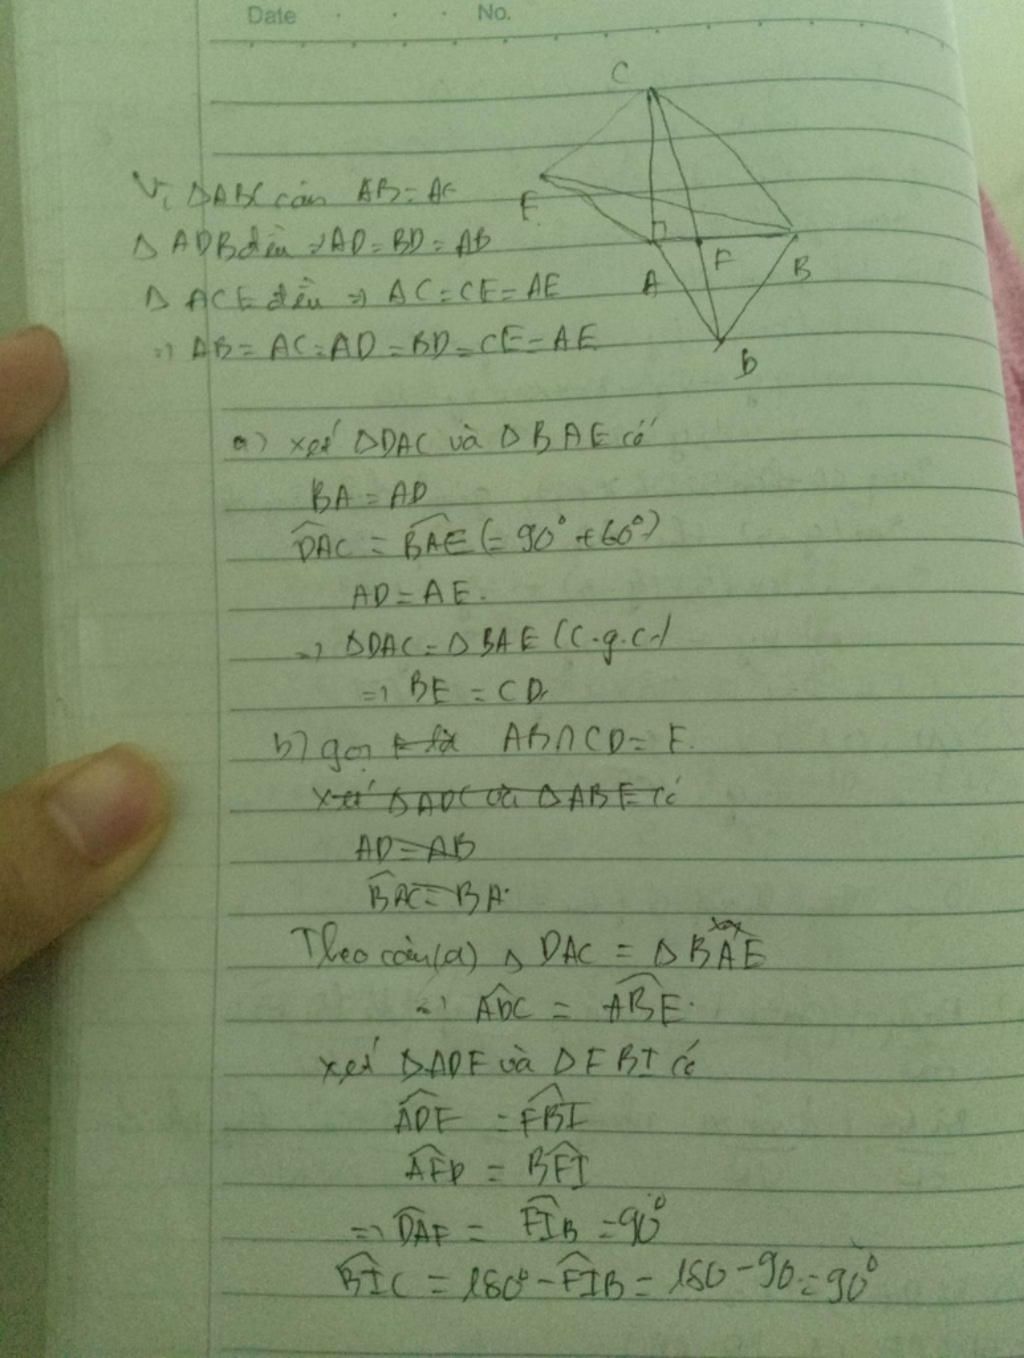 Date No.
C
Vì ΔABC cân AB = AC
E
ΔADB đều ⇒ AD = BD = AB
F
B
ΔACE đều ⇒ AC = CE = AE
A
⇒ AB = AC = AD = BD = CE = AE
D
a) xét ΔDAC và ΔBAE có
BA = AD
DAC = BAE (= 90° + 60°)
AD = AE.
⇒ ΔDAC = ΔBAE (c.g.c)
⇒ BE = CD
b) gọi F là AB∩CD = F.
xét ΔADC và ΔABE có
AD = AB
BAC = BA
Theo câu(a) Δ DAC = ΔBAE
⇒ ADC = ABE.
xét ΔADF và ΔFBI có
ADF = FBI
AFD = BFI
⇒ DAF = FIB = 90°
BIC = 180° - FIB = 180 - 90 = 90°